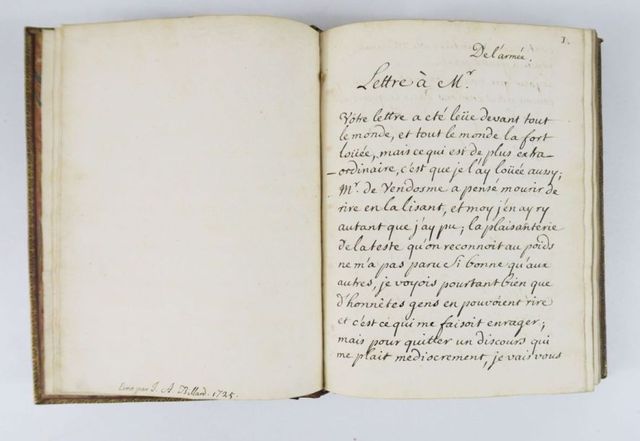 Ecrit par J. A. Billard. 1725.
1.
De l'armée.
Lettre à Mr.
Votre lettre a eté leüe devant tout
le monde, et tout le monde la fort
loüée, mais ce qui est de plus extra-
-ordinaire, c'est que je l'ay loüée aussy;
Mr. de Vendosme a pensé mourir de
rire en la lisant, et moy j'en ay ry
autant que j'ay pu; la plaisanterie
de la teste qu'on reconnoit au poids
ne m'a pas paru si bonne qu'aux
autres, je voyois pourtant bien que
d'honnêtes gens en pouvoient rire
et c'est ce qui me faisoit enrager;
mais pour quitter un discours qui
me plait mediocrement, je vais vous